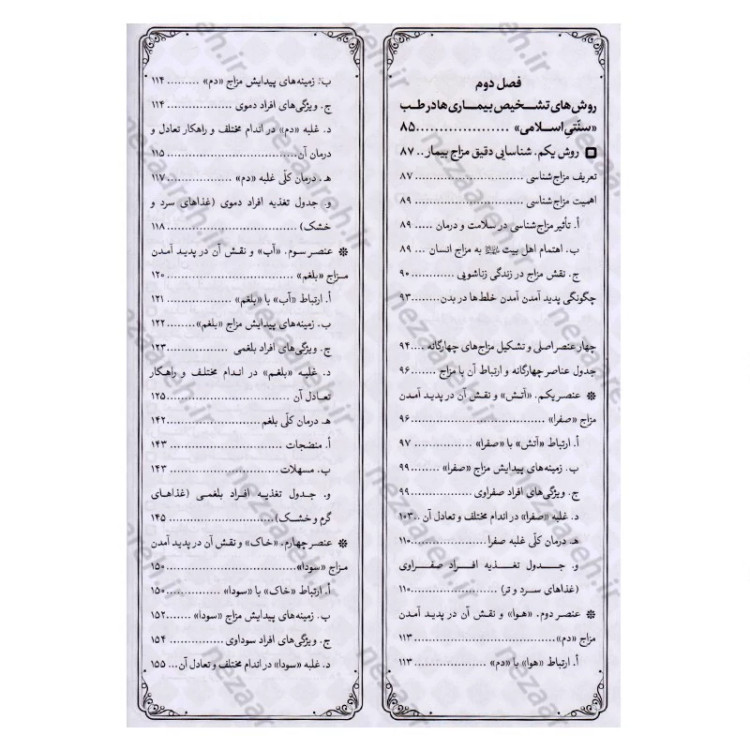 فصل دوم
روش‌های تشخیص بیماری‌ها در طب
«سنّتیِ اسلامی» .................... ۸۵
روش یکم. شناسایی دقیق مزاج بیمار .. ۸۷
تعریف مزاج‌شناسی ........................ ۸۷
اهمیت مزاج‌شناسی ........................ ۸۹
أ. تأثیر مزاج‌شناسی در سلامت و درمان ..... ۸۹
ب. اهتمام اهل بیت به مزاج انسان ... ۸۹
ج. نقش مزاج در زندگی زناشویی ........... ۹۰
چگونگی پدید آمدن آمدن خلط‌ها در بدن ....... ۹۳
چهار عنصر اصلی و تشکیل مزاج‌های چهارگانه .... ۹۴
جدول عناصر چهارگانه و ارتباط آن با مزاج ....... ۹۶
❊ عنصر یکم. «آتش» و نقش آن در پدید آمدن
مزاج «صفرا» ............................... ۹۶
أ. ارتباط «آتش» با «صفرا» ................ ۹۷
ب. زمینه‌های پیدایش مزاج «صفرا» ........ ۹۹
ج. ویژگی‌های افراد صفراوی ............... ۹۹
د. غلبه «صفرا» در اندام مختلف و تعادل آن .. ۱۰۳
هـ. درمان کلّی غلبه صفرا ................. ۱۱۰
و. جدول تغذیه افراد صفراوی
(غذاهای سرد و تر) ....................... ۱۱۰
❊ عنصر دوم. «هوا» و نقش آن در پدید آمدن
مزاج «دم» ................................ ۱۱۳
أ. ارتباط «هوا» با «دم» .................. ۱۱۳
ب. زمینه‌های پیدایش مزاج «دم» ......... ۱۱۴
ج. ویژگی‌های افراد دموی ................. ۱۱۴
د. غلبه «دم» در اندام مختلف و راهکار تعادل و
درمان آن .................................. ۱۱۵
هـ. درمان کلّی غلبه «دم» ................. ۱۱۷
و. جدول تغذیه افراد دموی (غذاهای سرد و
خشک) .................................... ۱۱۸
❊ عنصر سوم. «آب» و نقش آن در پدید آمدن
مزاج «بلغم» .............................. ۱۲۰
أ. ارتباط «آب» با «بلغم» ................. ۱۲۱
ب. زمینه‌های پیدایش مزاج «بلغم» ........ ۱۲۲
ج. ویژگی‌های افراد بلغمی ................ ۱۲۳
د. غلبه «بلغم» در اندام مختلف و راهکار
تعادل آن .................................. ۱۲۵
هـ. درمان کلّی بلغم ...................... ۱۴۲
أ. منضجات ................................ ۱۴۳
ب. مسهلات ............................... ۱۴۳
و. جدول تغذیه افراد بلغمی (غذاهای
گرم و خشک) .............................. ۱۴۵
❊ عنصر چهارم. «خاک» و نقش آن در پدید آمدن
مزاج «سودا» .............................. ۱۵۰
أ. ارتباط «خاک» با «سودا» ............... ۱۵۰
ب. زمینه‌های پیدایش مزاج «سودا» ........ ۱۵۲
ج. ویژگی‌های افراد سوداوی ............... ۱۵۴
د. غلبه «سودا» در اندام مختلف و تعادل آن ... ۱۵۵
nezaareh.ir